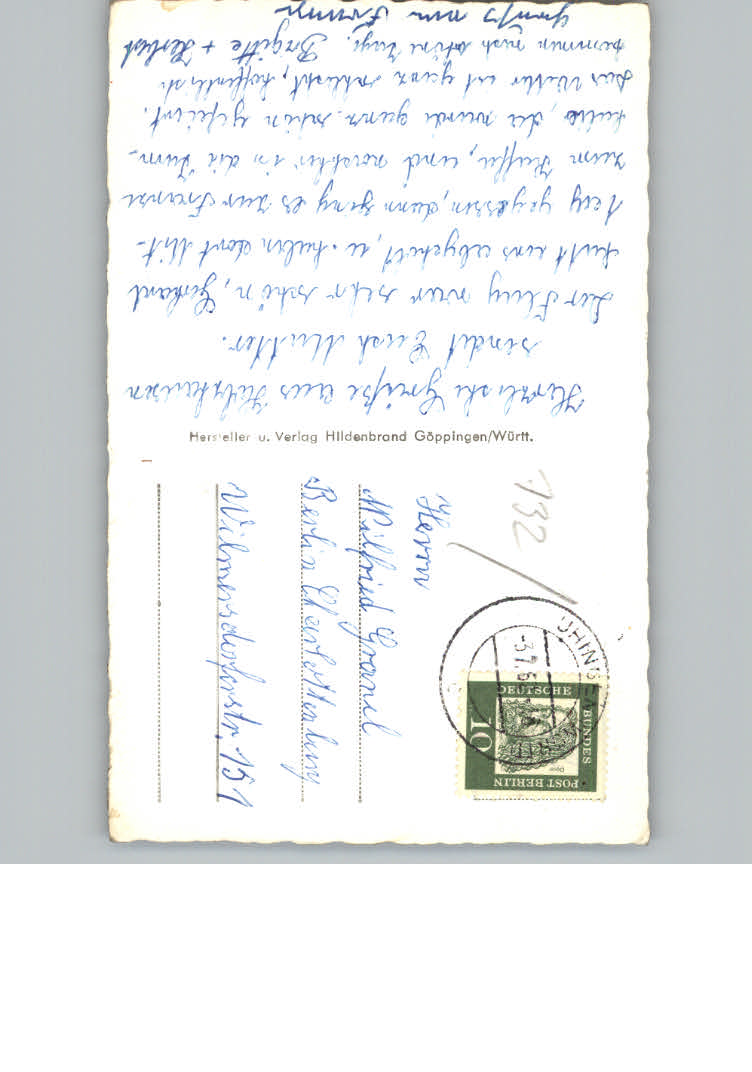 Herzliche Grüße aus Holzhausen
sendet Euch Mutter.
Der Flug war sehr schön, Gerhard
hat uns abgeholt, u. haben dort Mit-
tag gegessen, dann ging es zur
zum Kaffee, und nachher in die Turn-
halle, da wurde ganz schön gefeiert.
Das Wetter ist ganz schlecht, hoffentlich
kommen noch schöne Tage. Brigitte +
Gruß von
Hersteller u. Verlag Hildenbrand Göppingen/Württ.
732
Herrn
Wilfried
Berlin Charlottenburg
Wilmersdorferstr. 151
UHINGEN
-3.7.6
DEUTSCHE
BUNDES
POST BERLIN
10
Dürer